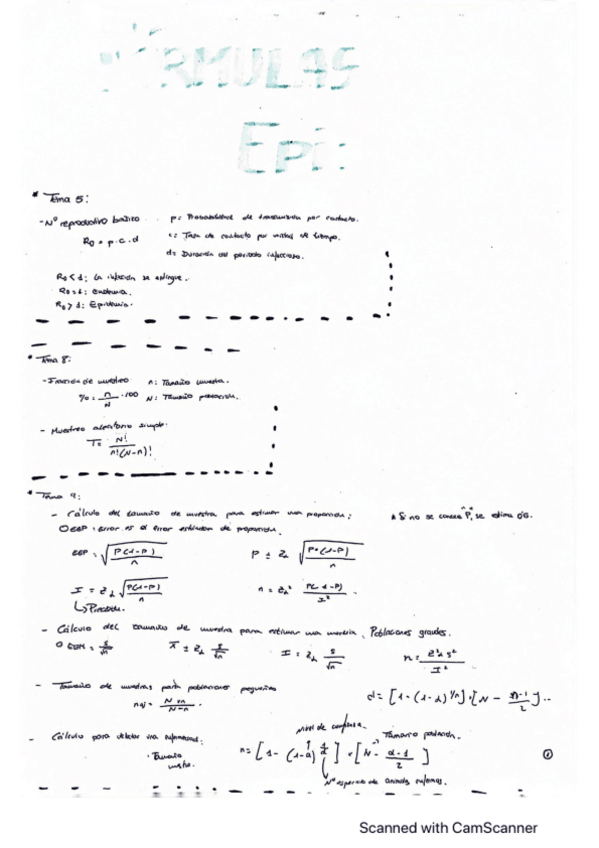 FÓRMULAS
Epi:
* Tema 5:
- Nº reproductivo básico
p: Probabilidad de transmisión por contacto.
R₀ = p · c · d
c: Tasa de contacto por unidad de tiempo.
d: Duración del periodo infeccioso.
R₀ < 1: La infección se extingue.
R₀ = 1: Endemia.
R₀ > 1: Epidemia.
* Tema 8:
- Fracción de muestreo
n: Tamaño muestra.
% = n/N · 100
N: Tamaño población.
- Muestreo aleatorio simple
T = N!/n!(N-n)!
* Tema 9:
- Cálculo del tamaño de muestra para estimar una proporción:
* Si no se conoce P, se estima 0'5.
EEP: Error es el error estándar de proporción.
EEP = √P(1-P)/n
P ± Zα √P·(1-P)/n
I = Zα √P(1-P)/n
n = Zα² P(1-P)/I²
↳ Precisión.
- Cálculo del tamaño de muestra para estimar una media. Poblaciones grandes.
EEM = s/√n
x̄ ± Zα s/√n
I = Zα s/√n
n = Z²α s²/I²
- Tamaño de muestras para poblaciones pequeñas
naj = N·n/N+n
d = [1 - (1-α)^1/n] · [N - n-1/2]
- Cálculo para detectar una enfermedad:
Nivel de confianza.
Tamaño población.
· Tamaño
n = [1 - (1-α)^1/d] · [N - d-1/2]
Nº esperado de animales enfermos.
①
Scanned with CamScanner